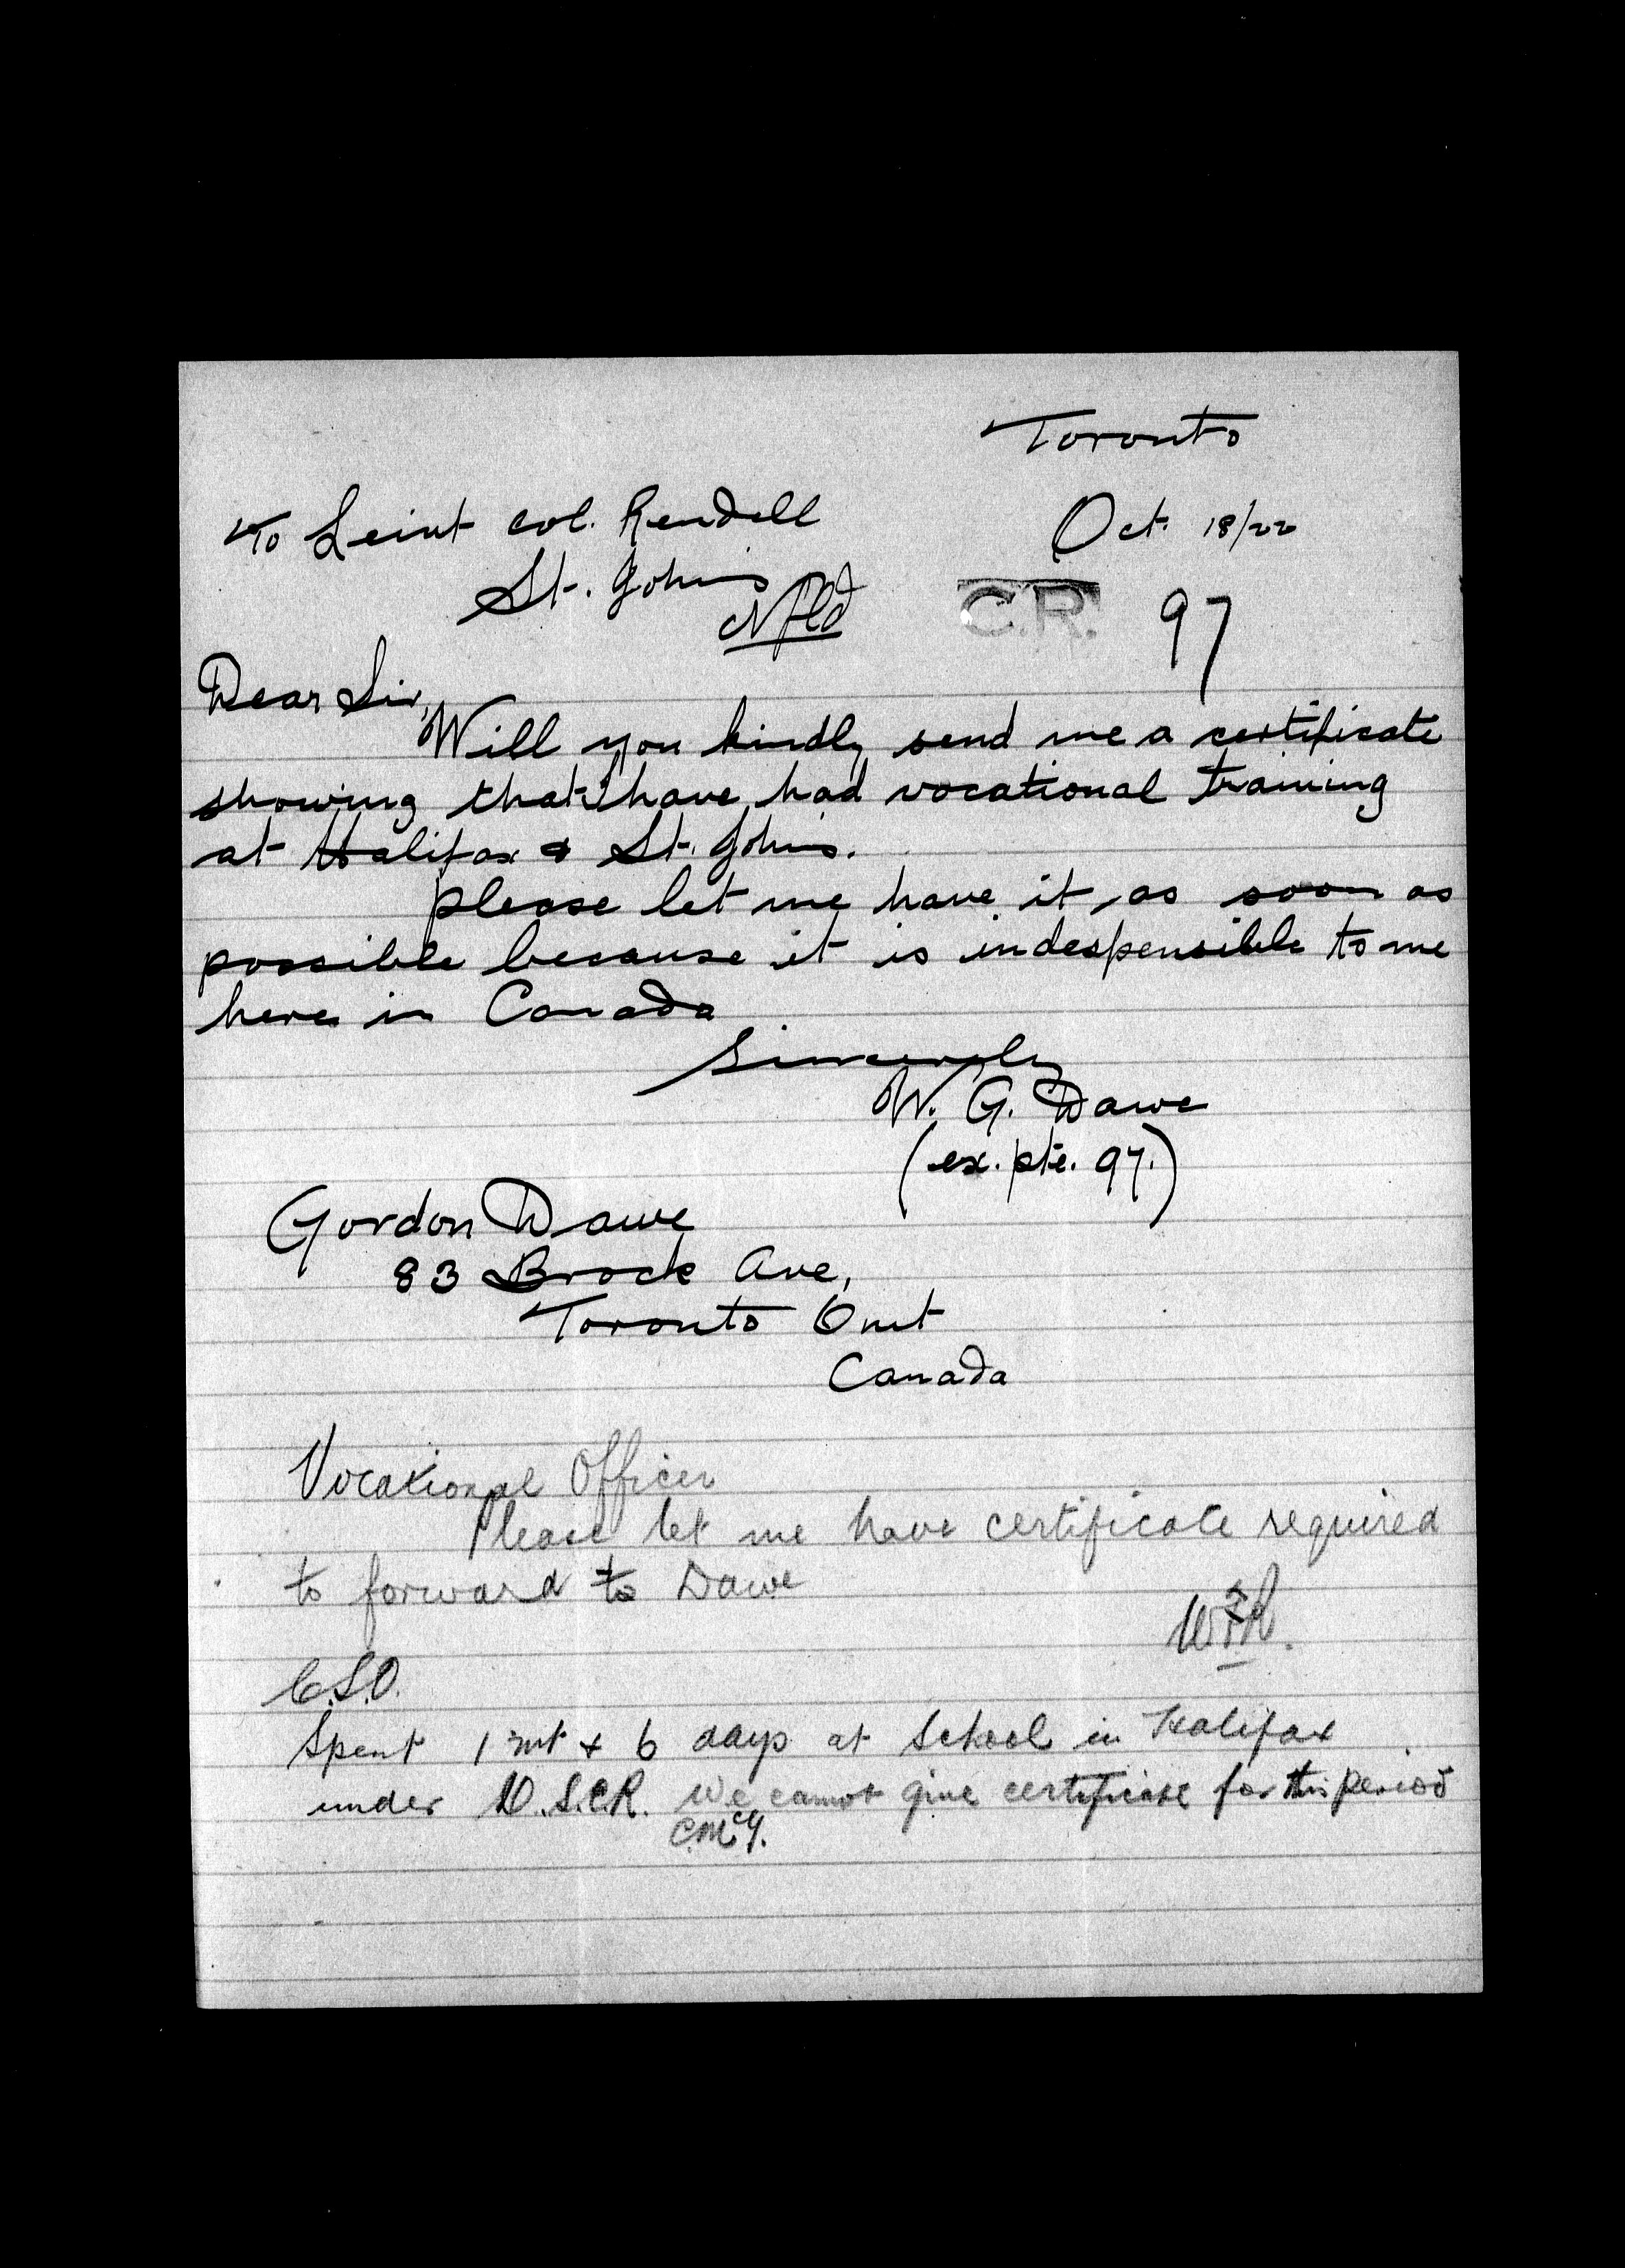 Toronto
To Leiut Col. Rendell
Oct. 18/22
St. John's
Nfld
C.R. 97
Dear Sir,
Will you kindly send me a certificate
showing that I have had vocational training
at Halifax & St. John's.
please let me have it, as soon as
possible because it is indespensible to me
here in Canada
Sincerely
W. G. Dawe
(ex. pte. 97.)
Gordon Dawe
83 Brock Ave,
Toronto Ont
Canada
Vocational Officer
Please let me have certificate required
to forward to Dawe
WFR.
C.S.O.
Spent 1 mt + 6 days at School in Halifax
under D.S.C.R. We cannot give certificate for this period